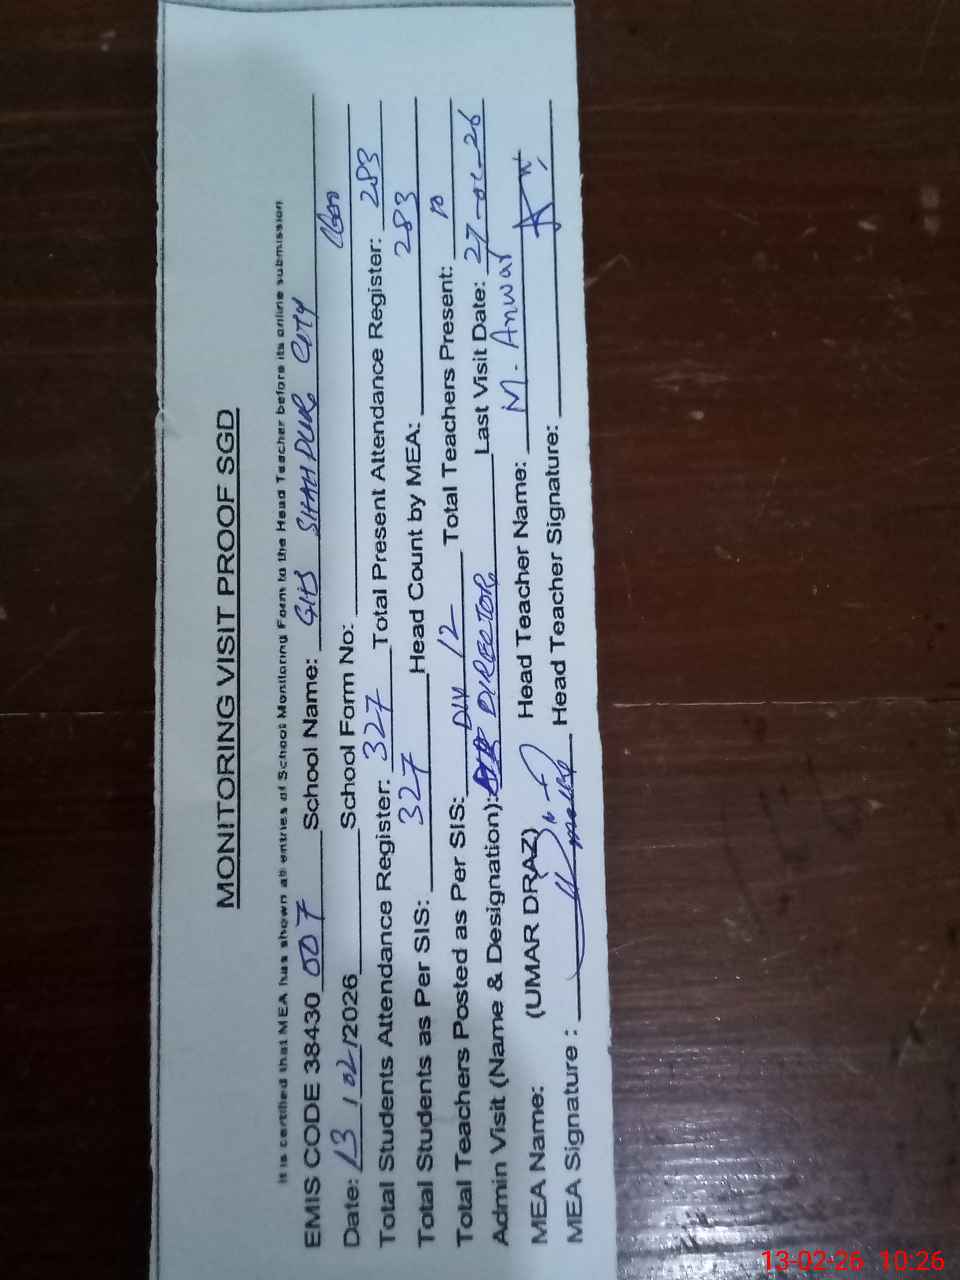 MONITORING VISIT PROOF SGD
It is certified that MEA has shown all entries of School Monitoring Form to the Head Teacher before its online submission
EMIS CODE 38430 007 School Name: GHS SHAHPUR CITY
Date: 13 / 02 /2026 School Form No:
Total Students Attendance Register: 327 Total Present Attendance Register: 283
Total Students as Per SIS: 327 Head Count by MEA: 283
Total Teachers Posted as Per SIS: 12 Total Teachers Present: 10
Admin Visit (Name & Designation): DIV DIRECTOR Last Visit Date: 27-01-26
MEA Name: (UMAR DRAZ) Head Teacher Name: M. Anwar
MEA Signature : Head Teacher Signature:
13-02-26 10:26